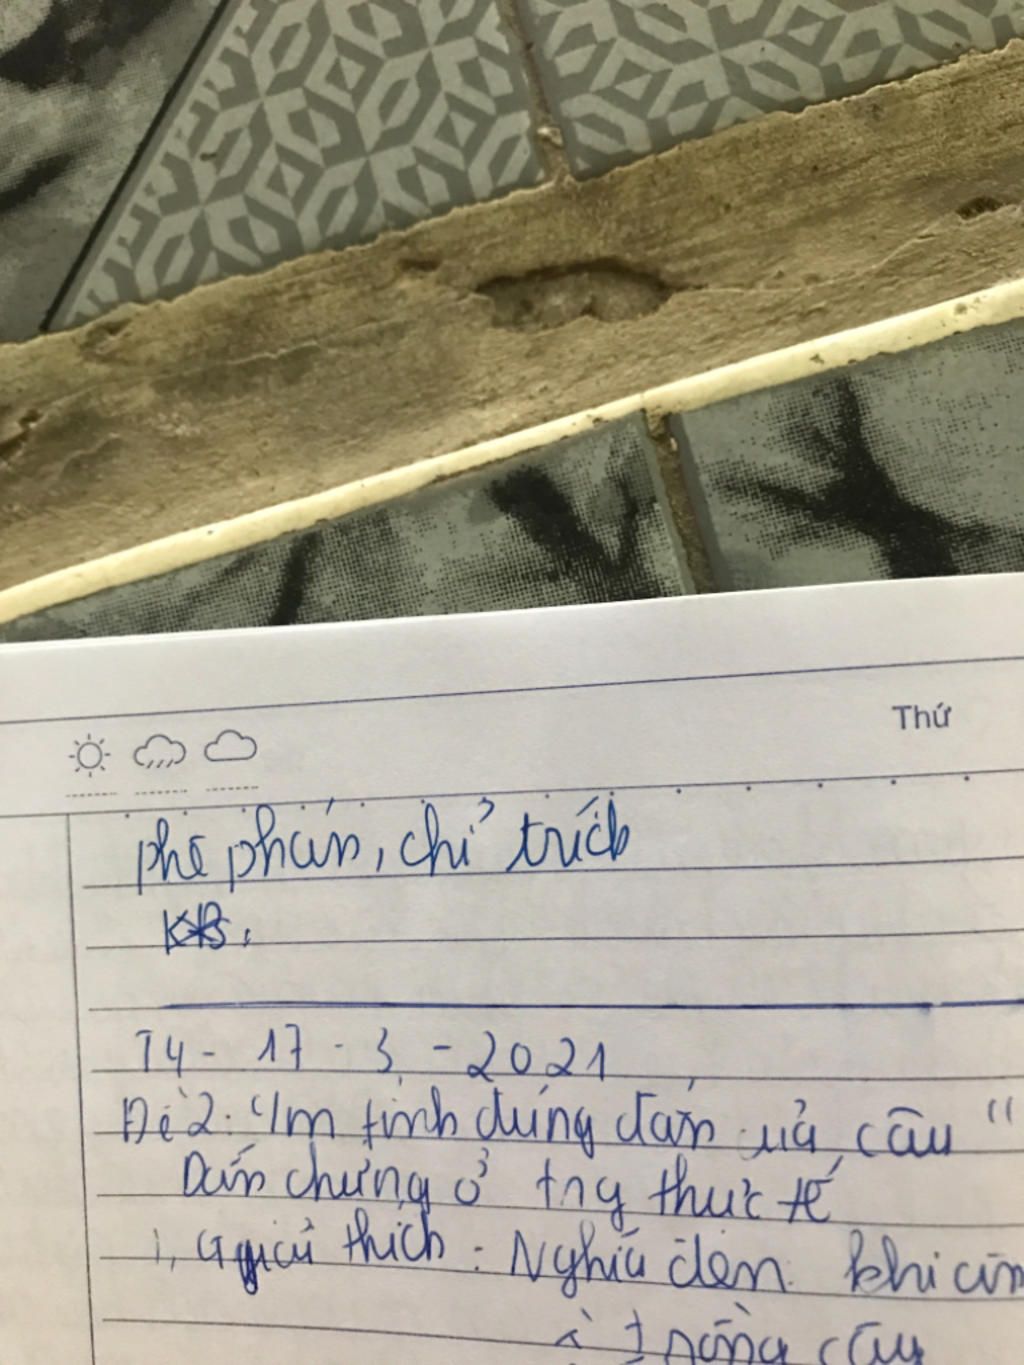 Thứ
phê phán, chỉ trích
KB,
T4 - 17 - 3 - 2021
Đề 2: C/m tính đúng đắn của câu "
Dẫn chứng ở trg thực tế
1, Giải thích : Nghĩa đen khi ăn
trồng cây